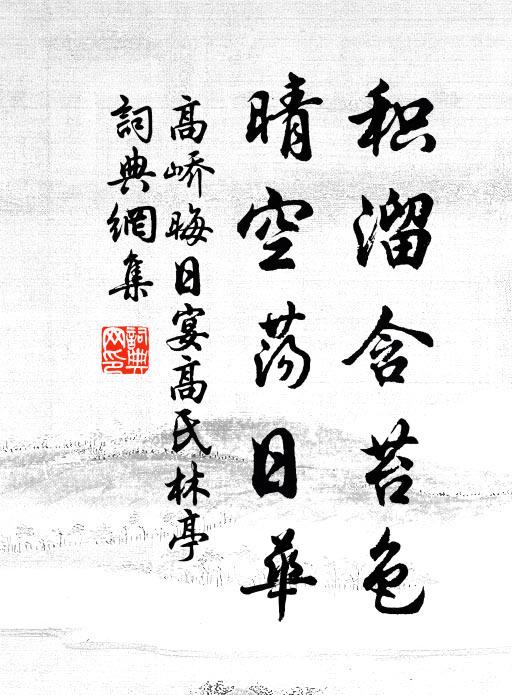 积溜含苔色
晴空荡日华
高峤晦日宴高氏林亭
詞典網集
詞典
网印